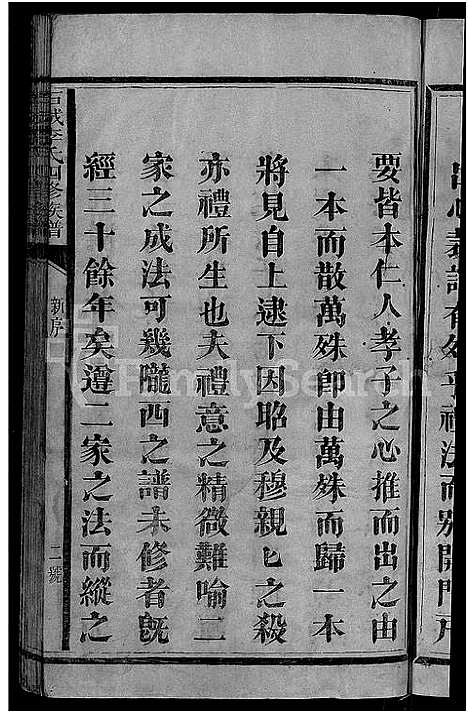 而別開門戶
要皆本仁人孝子之心推而出之由
一本而散萬殊卽由萬殊而歸一本
將見自上逮下因昭及穆親匕之殺
亦禮所生也夫禮意之精微難喻二
家之成法可幾隴西之譜未修者旣
經三十餘年矣遵二家之法而縱之
李氏四修族譜
新序
二號
FamilySearch